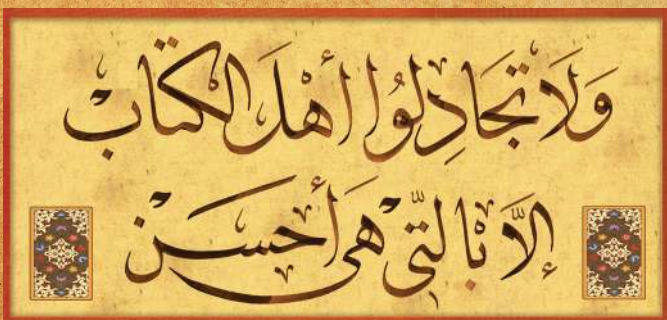 وَلَا تجَادِلُوا أهْلَ الكتَابْ
إلَّا بالتّي هيَ أحسَنْ